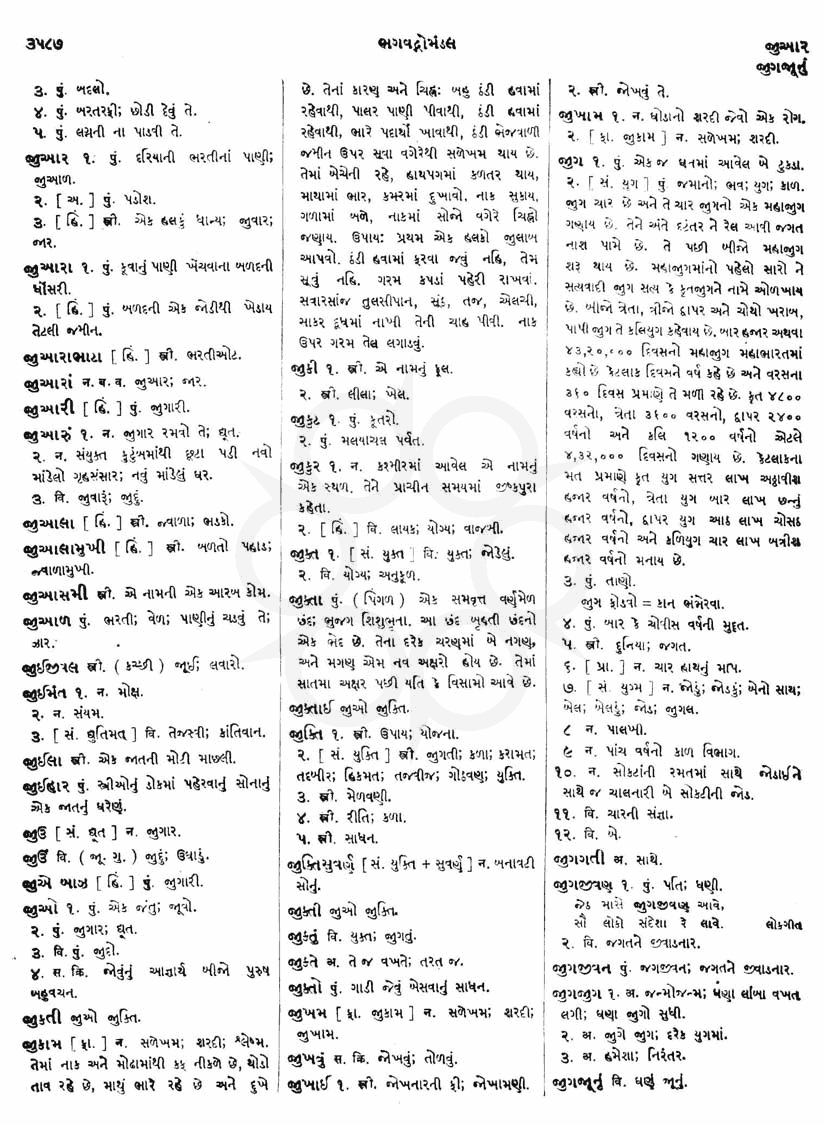 ૩૫૮૭
ભગવદ્ગોમંડલ
જીઆર
જીગજૂનું
૩. પું. બદલો.
૪. પું. બરતરફી; છોડી દેવું તે.
૫. પું. લગ્નની ના પાડવી તે.
જુઆર ૧. પું. દરિયાની ભરતીનાં પાણી;
જુઆળ.
૨. [ અ. ] પું. પડોશ.
૩. [ હિં. ] સ્ત્રી. એક હલકું ધાન્ય; જુવાર;
જાર.
જુઆરા ૧. પું. કૂવાનું પાણી ખેંચવાના બળદની
ધોંસરી.
૨. [ હિં. ] પું. બળદની એક જોડીથી ખેડાય
તેટલી જમીન.
જુઆરાભાટા [ હિં. ] સ્ત્રી. ભરતીઓટ.
જુઆરાં ન. બ. વ. જુઆર; જાર.
જુઆરી [ હિં. ] પું. જુગારી.
જુઆરું ૧. ન. જુગાર રમવો તે; દ્યૂત.
૨. ન. સંયુક્ત કુટુંબમાંથી છૂટા પડી નવો
માંડેલો ગૃહસંસાર; નવું માંડેલું ઘર.
૩. વિ. જુવારું; જુદું.
જુઆલા [ હિં. ] સ્ત્રી. જ્વાળા; ભડકો.
જુઆલામુખી [ હિં. ] સ્ત્રી. બળતો પહાડ;
જ્વાળામુખી.
જુઆસમી સ્ત્રી. એ નામની એક આરબ કોમ.
જુઆળ પું. ભરતી; વેળ; પાણીનું ચડવું તે;
ઝાર.
જુઇજીત્રલ સ્ત્રી. ( કચ્છી ) જૂઈ; લવારો.
જુઈમંત ૧. ન. મોક્ષ.
૨. ન. સંયમ.
૩. [ સં. દ્યુતિમત્ ] વિ. તેજસ્વી; કાંતિવાન.
જુઈલા સ્ત્રી. એક જાતની મોટી માછલી.
જુઈહાર પું. સ્ત્રીઓનું ડોકમાં પહેરવાનું સોનાનું
એક જાતનું ઘરેણું.
જુઉ [ સં. દ્યૂત ] ન. જુગાર.
જુઉં વિ. ( જૂ. ગુ. ) જુદું; ઉઘાડું.
જુએ બાઝ [ હિં. ] પું. જુગારી.
જુઓ ૧. પું. એક જંતુ; જૂવો.
૨. પું. જુગાર; દ્યૂત.
૩. વિ. પું. જુદો.
૪. સ. ક્રિ. જોવુંનું આજ્ઞાર્થ બીજો પુરુષ
બહુવચન.
જુકતી જુઓ જુક્તિ.
જુકામ [ ફા. ] ન. સળેખમ; શરદી; શ્લેષ્મ.
તેમાં નાક અને મોઢામાંથી કફ નીકળે છે, થોડો
તાવ રહે છે, માથું ભારે રહે છે અને દુખે
છે. તેનાં કારણ અને ચિહ્ન: બહુ ઠંડી હવામાં
રહેવાથી, પાલર પાણી પીવાથી, ઠંડી હવામાં
રહેવાથી, ભારે પદાર્થો ખાવાથી, ઠંડી ભેજવાળી
જમીન ઉપર સૂવા વગેરેથી સળેખમ થાય છે.
તેમાં બેચેની રહે, હાથપગમાં કળતર થાય,
માથામાં ભાર, કમરમાં દુખાવો, નાક સુકાય,
ગળામાં બળે, નાકમાં સોજો વગેરે ચિહ્નો
જણાય. ઉપાય: પ્રથમ એક હલકો જુલાબ
આપવો. ઠંડી હવામાં ફરવા જવું નહિ, તેમ
સૂવું નહિ. ગરમ કપડાં પહેરી રાખવાં.
સવારસાંજ તુલસીપાન, સૂંઠ, તજ, એલચી,
સાકર દૂધમાં નાખી તેની ચાહ પીવી. નાક
ઉપર ગરમ તેલ લગાડવું.
જુકી ૧. સ્ત્રી. એ નામનું ફૂલ.
૨. સ્ત્રી. લીલા; ખેલ.
જુકુટ ૧. પું. કૂતરો.
૨. પું. મલયાચલ પર્વત.
જુકુર ૧. ન. કશ્મીરમાં આવેલ એ નામનું
એક સ્થળ. તેને પ્રાચીન સમયમાં જીષ્કપુરા
કહેતા.
૨. [ હિં. ] વિ. લાયક; યોગ્ય; વાજબી.
જુક્ત ૧. [ સં. યુક્ત ] વિ. યુક્ત; જોડેલું.
૨. વિ. યોગ્ય; અનુકૂળ.
જુક્તા પું. ( પિંગળ ) એક સમવૃત્ત વર્ણમેળ
છંદ; ભુજગ શિશુભૃતા. આ છંદ બૃહતી છંદનો
એક ભેદ છે. તેના દરેક ચરણમાં બે નગણ,
અને મગણ એમ નવ અક્ષરો હોય છે. તેમાં
સાતમા અક્ષર પછી યતિ કે વિસામો આવે છે.
જુક્તાઈ જુઓ જુક્તિ.
જુક્તિ ૧. સ્ત્રી. ઉપાય; યોજના.
૨. [ સં. યુક્તિ ] સ્ત્રી. જુગતી; કળા; કરામત;
તદબીર; હિકમત; તજવીજ; ગોઠવણ; યુક્તિ.
૩. સ્ત્રી. મેળવણી.
૪. સ્ત્રી. રીતિ; કળા.
૫. સ્ત્રી. સાધન.
જુક્તિસુવર્ણ [ સં. યુક્તિ + સુવર્ણ ] ન. બનાવટી
સોનું.
જુક્તી જુઓ જુક્તિ.
જુક્તું વિ. યુક્ત; જુગતું.
જુક્તે અ. તે જ વખતે; તરત જ.
જુક્તો પું. ગાડી જેવું બેસવાનું સાધન.
જુખમ [ ફા. જુકામ ] ન. સળેખમ; શરદી;
જુખામ.
જુખવું સ. ક્રિ. જોખવું; તોળવું.
જુખાઈ ૧. સ્ત્રી. જોખનારની ફી; જોખામણી.
૨. સ્ત્રી. જોખવું તે.
જુખામ ૧. ન. ઘોડાનો શરદી જેવો એક રોગ.
૨. [ ફા. જુકામ ] ન. સળેખમ; શરદી.
જુગ ૧. પું. એક જ ઘનમાં આવેલ બે ટુકડા.
૨. [ સં. યુગ ] પું. જમાનો; ભવ; યુગ; કાળ.
જુગ ચાર છે અને તે ચાર જુગનો એક મહાજુગ
ગણાય છે. તેને અંતે દટંતર ને રેલ આવી જગત
નાશ પામે છે. તે પછી બીજો મહાજુગ
શરૂ થાય છે. મહાજુગમાંનો પહેલો સારો ને
સત્યવાદી જુગ સત્ય કે કૃતજુગને નામે ઓળખાય
છે. બીજો ત્રેતા, ત્રીજો દ્વાપર અને ચોથો ખરાબ,
પાપી જુગ તે કલિયુગ કહેવાય છે. બાર હજાર અથવા
૪૩,૨૦,૦૦૦ દિવસનો મહાજુગ મહાભારતમાં
કહ્યો છે કેટલાક દિવસને વર્ષ કહે છે અને વરસના
૩૬૦ દિવસ પ્રમાણે તે મળી રહે છે. કૃત ૪૮૦૦
વરસનો, ત્રેતા ૩૬૦૦ વરસનો, દ્વાપર ૨૪૦૦
વર્ષનો અને કલિ ૧૨૦૦ વર્ષનો એટલે
૪,૩૨,૦૦૦ દિવસનો ગણાય છે. કેટલાકના
મત પ્રમાણે કૃત યુગ સત્તર લાખ અઠ્ઠાવીશ
હજાર વર્ષનો, ત્રેતા યુગ બાર લાખ છન્નું
હજાર વર્ષનો, દ્વાપર યુગ આઠ લાખ ચોસઠ
હજાર વર્ષનો અને કળિયુગ ચાર લાખ બત્રીશ
હજાર વર્ષનો મનાય છે.
૩. પું. તાણો.
જુગ ફોડવો = કાન ભંભેરવા.
૪. પું. બાર કે ચોવીસ વર્ષની મુદ્દત.
૫. સ્ત્રી. દુનિયા; જગત.
૬. [ પ્રા. ] ન. ચાર હાથનું માપ.
૭. [ સં. યુગ્મ ] ન. જોડું; જોડકું; બેનો સાથ;
બેલ; બેલડું; જોડ; જુગલ.
૮ ન. પાલખી.
૯ ન. પાંચ વર્ષનો કાળ વિભાગ.
૧૦. ન. સોકટાંની રમતમાં સાથે જોડાઈને
સાથે જ ચાલનારી બે સોકટીની જોડ.
૧૧. વિ. ચારની સંજ્ઞા.
૧૨. વિ. બે.
જુગગતી અ. સાથે.
જુગજીવણ ૧. પું. પતિ; ધણી.
જેઠ માસે જુગજીવણ આવે,
સૌ લોકો સંદેશા રે લાવે. લોકગીત
૨. વિ. જગતને જીવાડનાર.
જુગજીવન પું. જગજીવન; જગતને જીવાડનાર.
જુગજુગ ૧. અ. જન્મોજન્મ; ઘણા લાંબા વખત
લગી; ઘણા જુગો સુધી.
૨. અ. જુગે જુગ; દરેક યુગમાં.
૩. અ. હમેશા; નિરંતર.
જુગજૂનું વિ. ઘણું જૂનું.